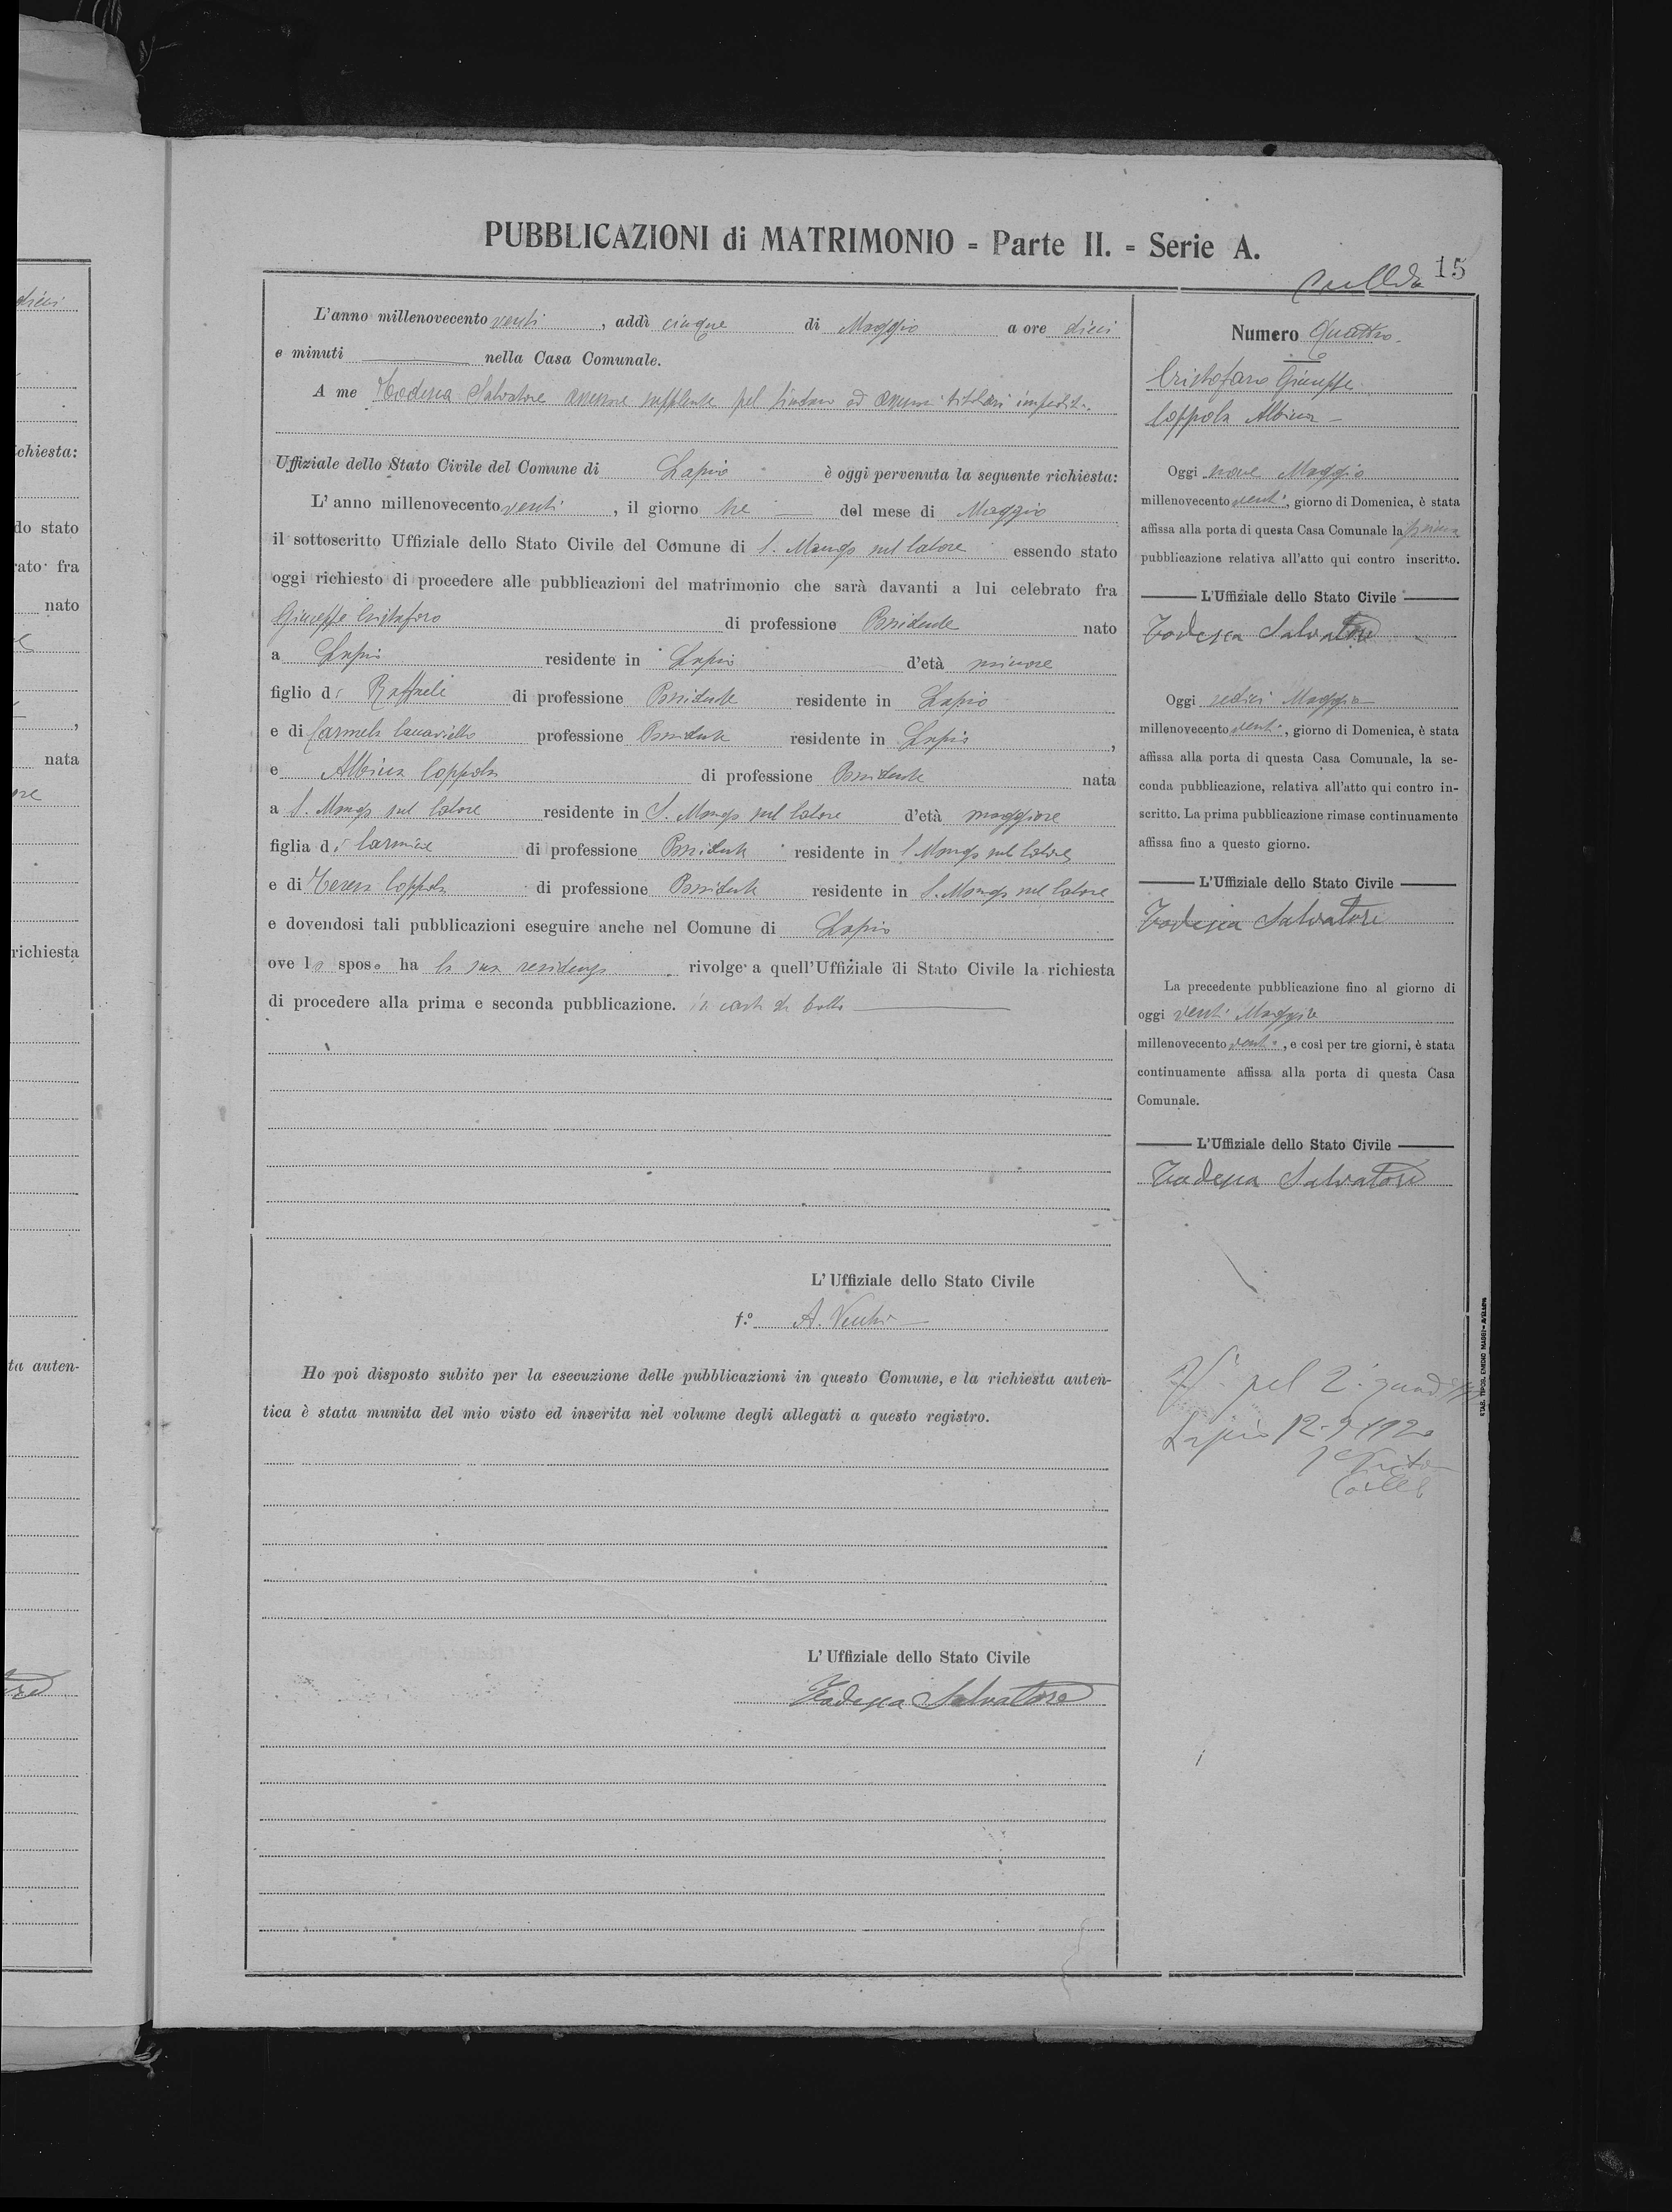 dieci
chiesta:
do stato
rato fra
nato
nata
richiesta
ta auten-
PUBBLICAZIONI di MATRIMONIO - Parte II. - Serie A.
15
L'anno millenovecento venti, addì cinque di Maggio a ore dieci
e minuti ——— nella Casa Comunale.
A me Todesca Salvatore assessore supplente pel sindaco ed assessori titolari impediti.
Uffiziale dello Stato Civile del Comune di Lapio è oggi pervenuta la seguente richiesta:
L'anno millenovecento venti, il giorno tre — del mese di Maggio
il sottoscritto Uffiziale dello Stato Civile del Comune di S. Mango sul Calore essendo stato
oggi richiesto di procedere alle pubblicazioni del matrimonio che sarà davanti a lui celebrato fra
Giuseppe Cristofaro di professione Possidente nato
a Lapio residente in Lapio d'età minore
figlio di Raffaele di professione Possidente residente in Lapio
e di Carmela professione Possidente residente in Lapio,
e Albina Coppola di professione Possidente nata
a S. Mango sul Calore residente in S. Mango sul Calore d'età maggiore
figlia di Carmine di professione Possidente residente in S. Mango sul Calore
e di Teresa Coppola di professione Possidente residente in S. Mango sul Calore
e dovendosi tali pubblicazioni eseguire anche nel Comune di Lapio
ove lo sposo ha la sua residenza rivolge a quell'Uffiziale di Stato Civile la richiesta
di procedere alla prima e seconda pubblicazione. in carta da bollo ———
L'Uffiziale dello Stato Civile
f.º A.
Ho poi disposto subito per la esecuzione delle pubblicazioni in questo Comune, e la richiesta auten-
tica è stata munita del mio visto ed inserita nel volume degli allegati a questo registro.
L'Uffiziale dello Stato Civile
Todesca Salvatore
Numero Quattro.
Cristofaro Giuseppe
Coppola Albina —
Oggi nove Maggio
millenovecento venti, giorno di Domenica, è stata
affissa alla porta di questa Casa Comunale la prima
pubblicazione relativa all'atto qui contro inscritto.
L'Uffiziale dello Stato Civile
Todesca Salvatore
Oggi sedici Maggio
millenovecento venti, giorno di Domenica, è stata
affissa alla porta di questa Casa Comunale, la se-
conda pubblicazione, relativa all'atto qui contro in-
scritto. La prima pubblicazione rimase continuamente
affissa fino a questo giorno.
L'Uffiziale dello Stato Civile
Todesca Salvatore
La precedente pubblicazione fino al giorno di
oggi venti Maggio
millenovecento venti, e così per tre giorni, è stata
continuamente affissa alla porta di questa Casa
Comunale.
L'Uffiziale dello Stato Civile
Todesca Salvatore
pel 2º
Lapio 12-9-1920
STAB. TIPOG. EMIDIO MAGGI - AVELLINO